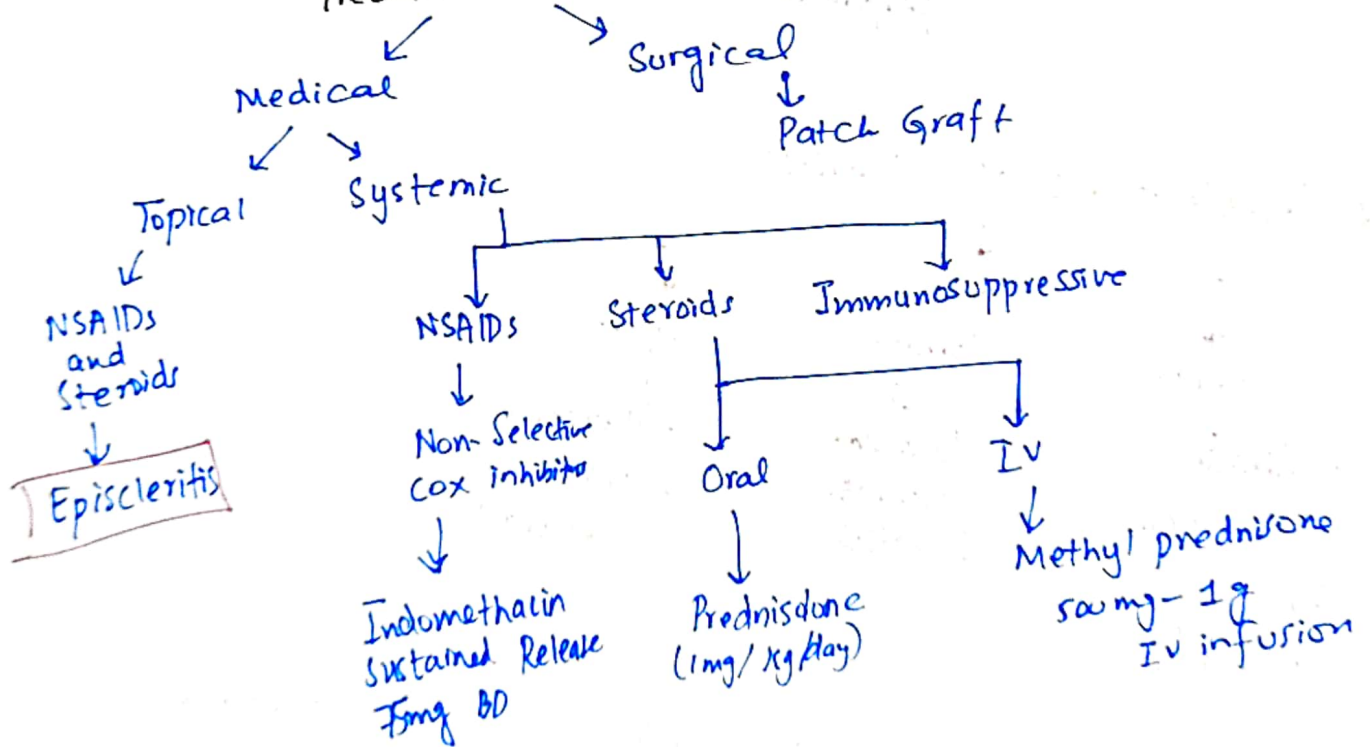 Medical
Surgical
Patch Graft
Topical
Systemic
NSAIDs
and
Steroids
Episcleritis
NSAIDs
Steroids
Immunosuppressive
Non-Selective
Cox inhibitor
Indomethacin
Sustained Release
75mg BD
Oral
Prednisolone
(1mg/kg/day)
IV
Methyl prednisone
500mg - 1g
IV infusion